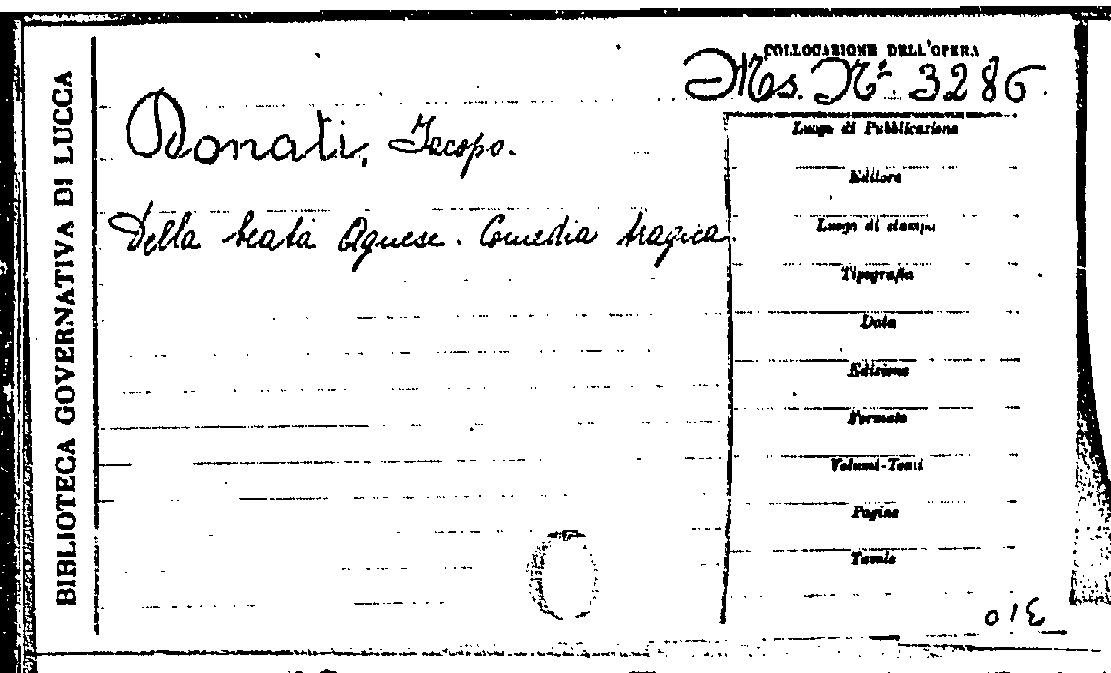 BIBLIOTECA GOVERNATIVA DI LUCCA
COLLOCAZIONE DELL'OPERA
Ms. N.º 3286.
Donati, Jacopo.
Della beata Agnese. Comedia tragica.
Luogo di Pubblicazione
Editore
Luogo di stampa
Tipografia
Data
Edizione
Formato
Volumi-Tomi
Pagine
Tavole